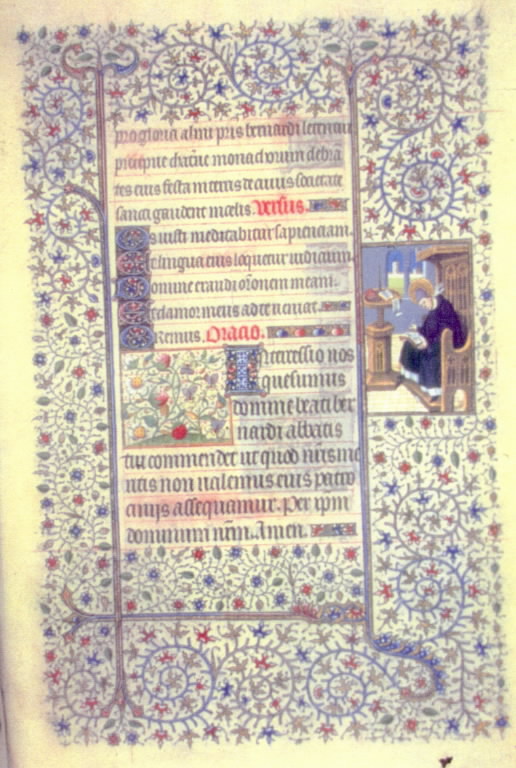 pro gloria almi pris bernardi letentur
precipue chatue monachorum
tes eius festa mentes de cuius societate
sancti gaudent in celis. Versus.
Os iusti meditabitur sapienciam.
Et lingua eius loquetur iudicium
Domine exaudi oronem meam.
Et clamor meus ad te veniat.
Oremus. Oracio.
Intercessio nos
quesumus
domine beati ber
nardi abbatis
tui commendet ut quod nris me
ritis non valemus eius patro
cinijs assequamur. Per xpm
dominum nrm. Amen.